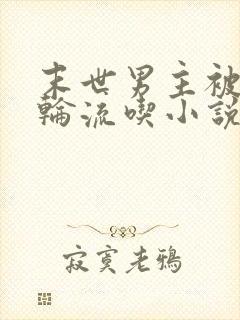 末世男主被
輪流喫小説
寂寞老鴉